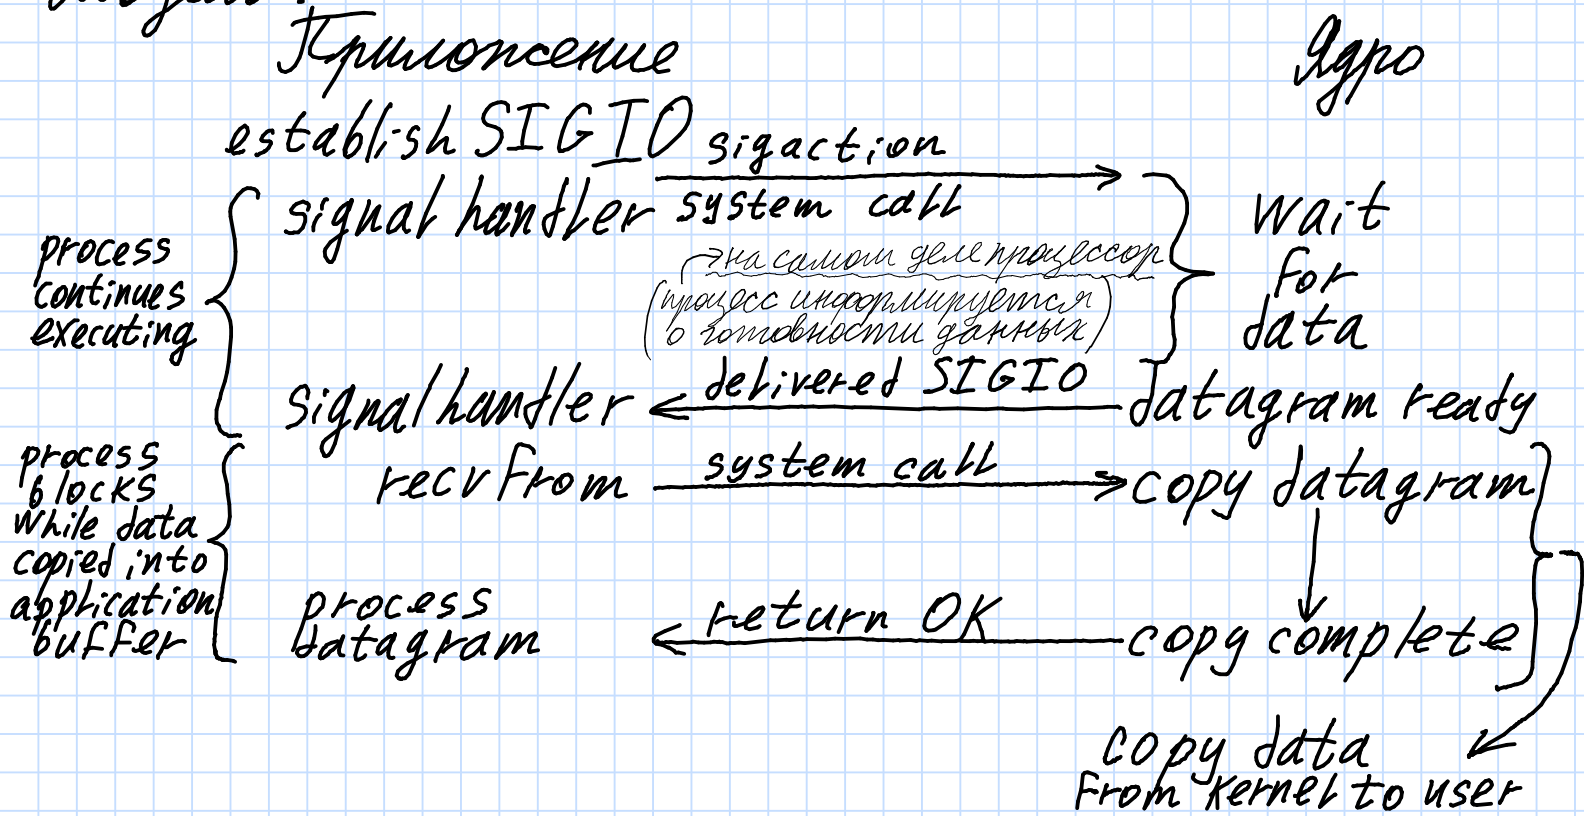 Приложение
Ядро
establish SIGIO
sigaction
signal handler
system call
wait
for
data
process
continues
executing
на самом деле процессор
(процесс информируется
о готовности данных)
signal handler
delivered SIGIO
datagram ready
process
blocks
while data
copied into
application
buffer
recvfrom
system call
copy datagram
process
datagram
return OK
copy complete
copy data
from kernel to user